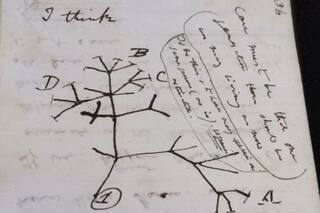 36
I think
Case must be that one
generation then should be
as many living as now
To do this & to have many species in
same genus (as is) requires
extinction.
B
D
C
A
1